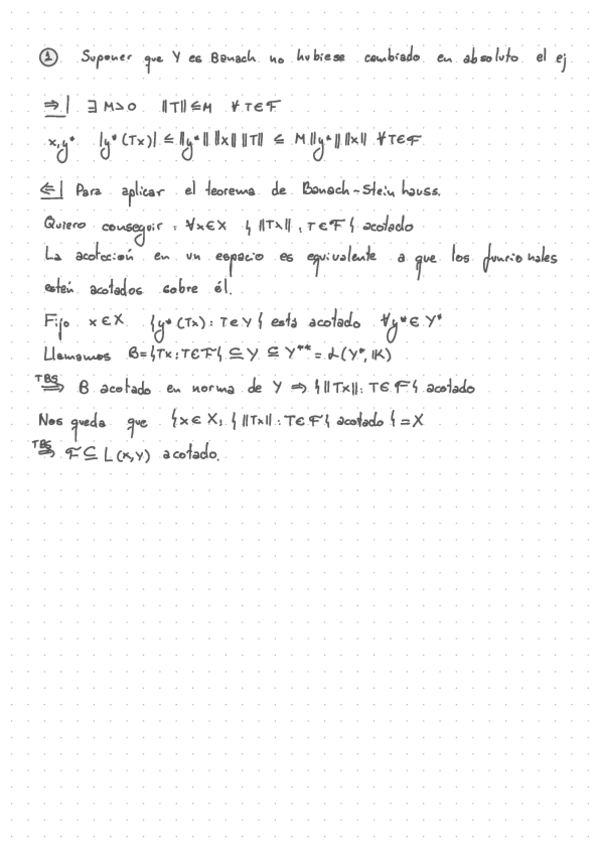 ① Suponer que Y es Banach no hubiese cambiado en absoluto el ej
⇒| ∃ M>0 ‖T‖≤M ∀T∈F
x,y* |y*(Tx)| ≤ ‖y*‖ ‖x‖ ‖T‖ ≤ M‖y*‖ ‖x‖ ∀T∈F
⇐| Para aplicar el teorema de Banach-Steinhauss.
Quiero conseguir: ∀x∈X {‖Tx‖, T∈F} acotado
La acotación en un espacio es equivalente a que los funcionales
estén acotados sobre él.
Fijo x∈X {y*(Tx): T∈Y} está acotado ∀y*∈Y*
Llamamos B={Tx: T∈F} ⊆ Y ⊆ Y** = L(Y*, K)
TBS ⇒ B acotado en norma de Y ⇒ {‖Tx‖: T∈F} acotado
Nos queda que {x∈X: {‖Tx‖: T∈F} acotado} = X
TBS ⇒ F ⊆ L(X,Y) acotado.